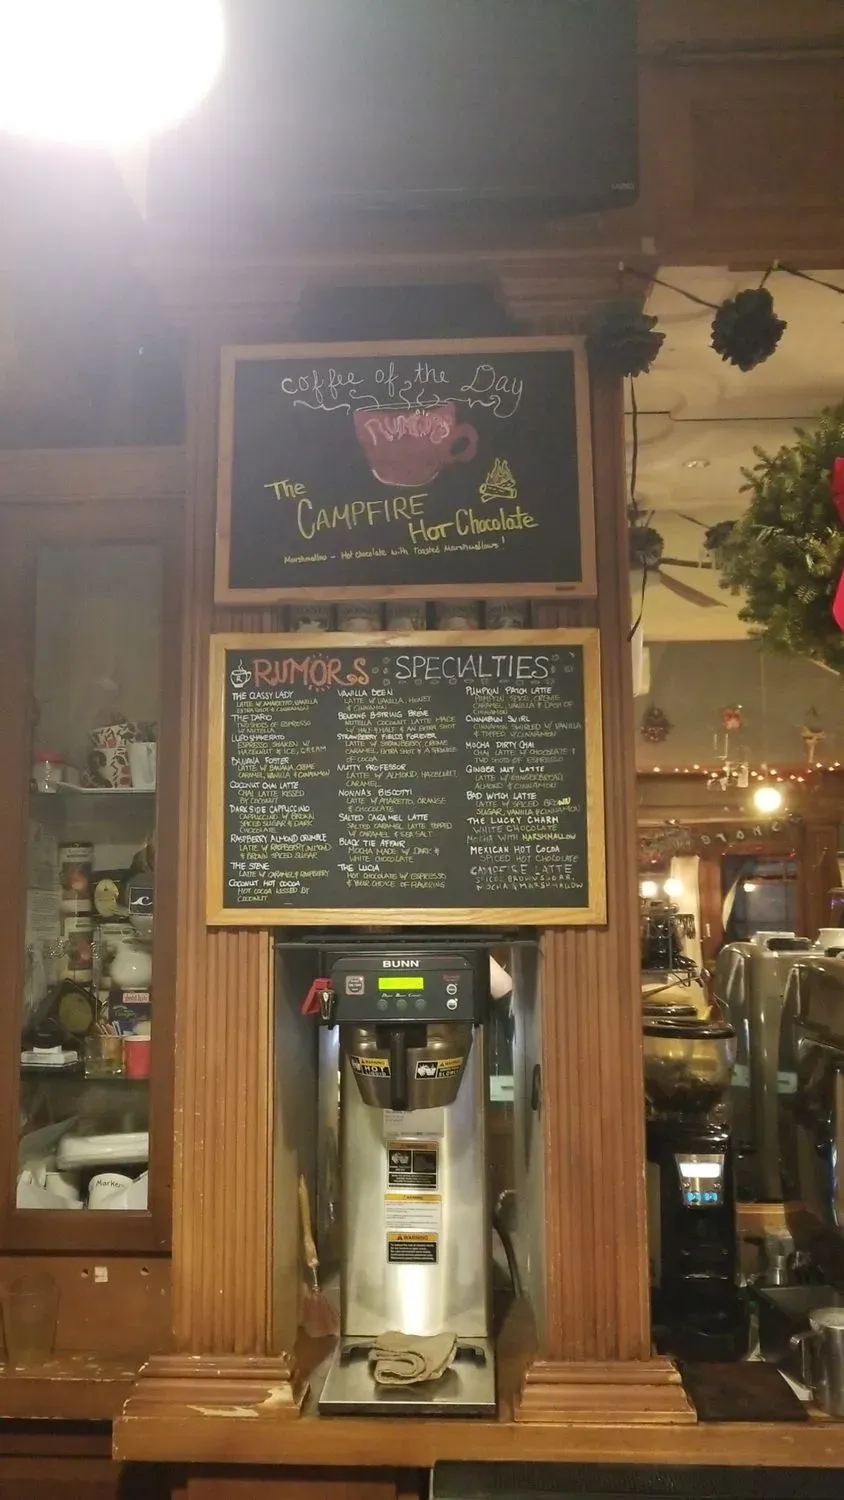 coffee of the Day
RUMORS
The
CAMPFIRE
Hot Chocolate
Marshmallow - Hot chocolate with Toasted Marshmallows!
RUMORS SPECIALTIES
THE CLASSY LADY
LATTE W/ AMARETTO, VANILLA
EXTRA SHOT & CINNAMON
THE DARIO
TWO SHOTS OF ESPRESSO
W/ NUTELLA
LUPO SHAKERATO
ESPRESSO SHAKEN W/
HAZELNUT & ICE, CREAM
BANANA FOSTER
LATTE W/ BANANA, CREME
CARAMEL, VANILLA & CINNAMON
COCONUT CHAI LATTE
CHAI LATTE KISSED
BY COCONUT
DARK SIDE CAPPUCCINO
CAPPUCCINO W/ BROWN
SPICED SUGAR & DARK
CHOCOLATE
RASPBERRY ALMOND CRUMBLE
LATTE W/ RASPBERRY, ALMOND
& BROWN SPICED SUGAR
THE STEVE
LATTE W/ CARAMEL & RASPBERRY
COCONUT HOT COCOA
HOT COCOA KISSED BY
COCONUT
VANILLA BEEN
LATTE W/ VANILLA, HONEY
& CINNAMON
NUTELLA COCONUT LATTE MADE
W/ HALF & HALF & AN EXTRA SHOT
STRAWBERRY FIELDS FOREVER
LATTE W/ STRAWBERRY, CREME
CARAMEL, EXTRA SHOT &
OF COCOA
NUTTY PROFESSOR
LATTE W/ ALMOND, HAZELNUT,
CARAMEL
NONNA'S BISCOTTI
LATTE W/ AMARETTO, ORANGE
& CHOCOLATE
SALTED CARAMEL LATTE
SALTED CARAMEL LATTE TOPPED
W/ CARAMEL & SEA SALT
BLACK TIE AFFAIR
MOCHA MADE W/ DARK &
WHITE CHOCOLATE
THE LUCIA
HOT CHOCOLATE W/ ESPRESSO
& YOUR CHOICE OF FLAVORING
PUMPKIN PATCH LATTE
PUMPKIN SPICE, CREME
CARAMEL, VANILLA & DASH OF
CINNAMON
CINNABUN SWIRL
CINNAMON SWIRLED W/ VANILLA
& TOPPED W/ CINNAMON
MOCHA DIRTY CHAI
CHAI LATTE W/ CHOCOLATE &
TWO SHOTS OF ESPRESSO
GINGER NUT LATTE
LATTE W/ GINGERBREAD,
ALMOND & CINNAMON
BAD WITCH LATTE
LATTE W/ SPICED BROWN
SUGAR, VANILLA & CINNAMON
THE LUCKY CHARM
WHITE CHOCOLATE
MOCHA WITH MARSHMALLOW
MEXICAN HOT COCOA
SPICED HOT CHOCOLATE
CAMPFIRE LATTE
SPICED BROWN SUGAR,
MOCHA & MARSHMALLOW
BUNN
WARNING
HOT
LIQUID
WARNING
WARNING
WARNING
WARNING
Marker